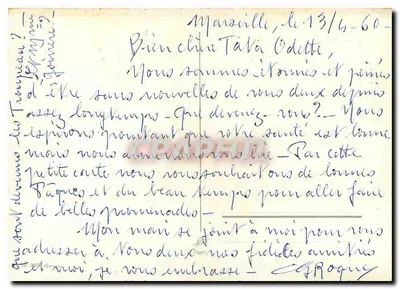 Marseille, le 13/4-60-
Bien chère Tata Odette,
Nous sommes étonnés et peinés
d'être sans nouvelles de vous deux depuis
assez longtemps - Que devenez-vous? - Nous
espérons pourtant que votre santé est bonne
mais nous aimerions vous lire - Par cette
petite carte nous vous souhaitons de bonnes
Pâques et du beau temps pour aller faire
de belles promenades -
Mon mari se joint à moi pour vous
adresser à vous deux nos fidèles amitiés
et moi, je vous embrasse - Roque
que sont devenus les ? -